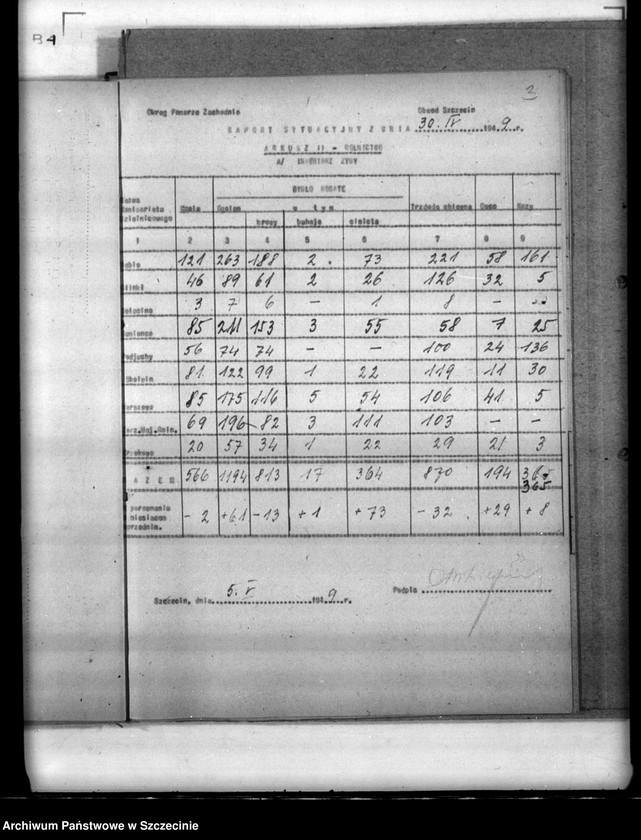 B4
3
Okręg Pomorze Zachodnie
Obwód Szczecin
RAPORT SYTUACYJNY Z DNIA 30.IV 1949 r.
ARKUSZ II - ROLNICTWO
A/ INWENTARZ ŻYWY
BYDŁO ROGATE
w tym
Konie Ogółem krowy buhaje cielęta Trzoda chlewna Owce Kozy
1 2 3 4 5 6 7 8 9
121 263 188 2 73 221 58 161
46 89 61 2 26 126 32 5
3 7 6 — 1 8 —
85 211 153 3 55 58 7 25
56 74 74 — — 100 24 136
81 122 99 1 22 119 11 30
85 175 116 5 54 106 41 5
69 196 82 3 111 103 — —
20 57 34 1 22 29 21 3
RAZEM 566 1194 813 17 364 870 194
365
- 2 +61 -13 +1 +73 -32 +29 +8
Szczecin, dnia 5.V 1949 r.
Podpis
Archiwum Państwowe w Szczecinie